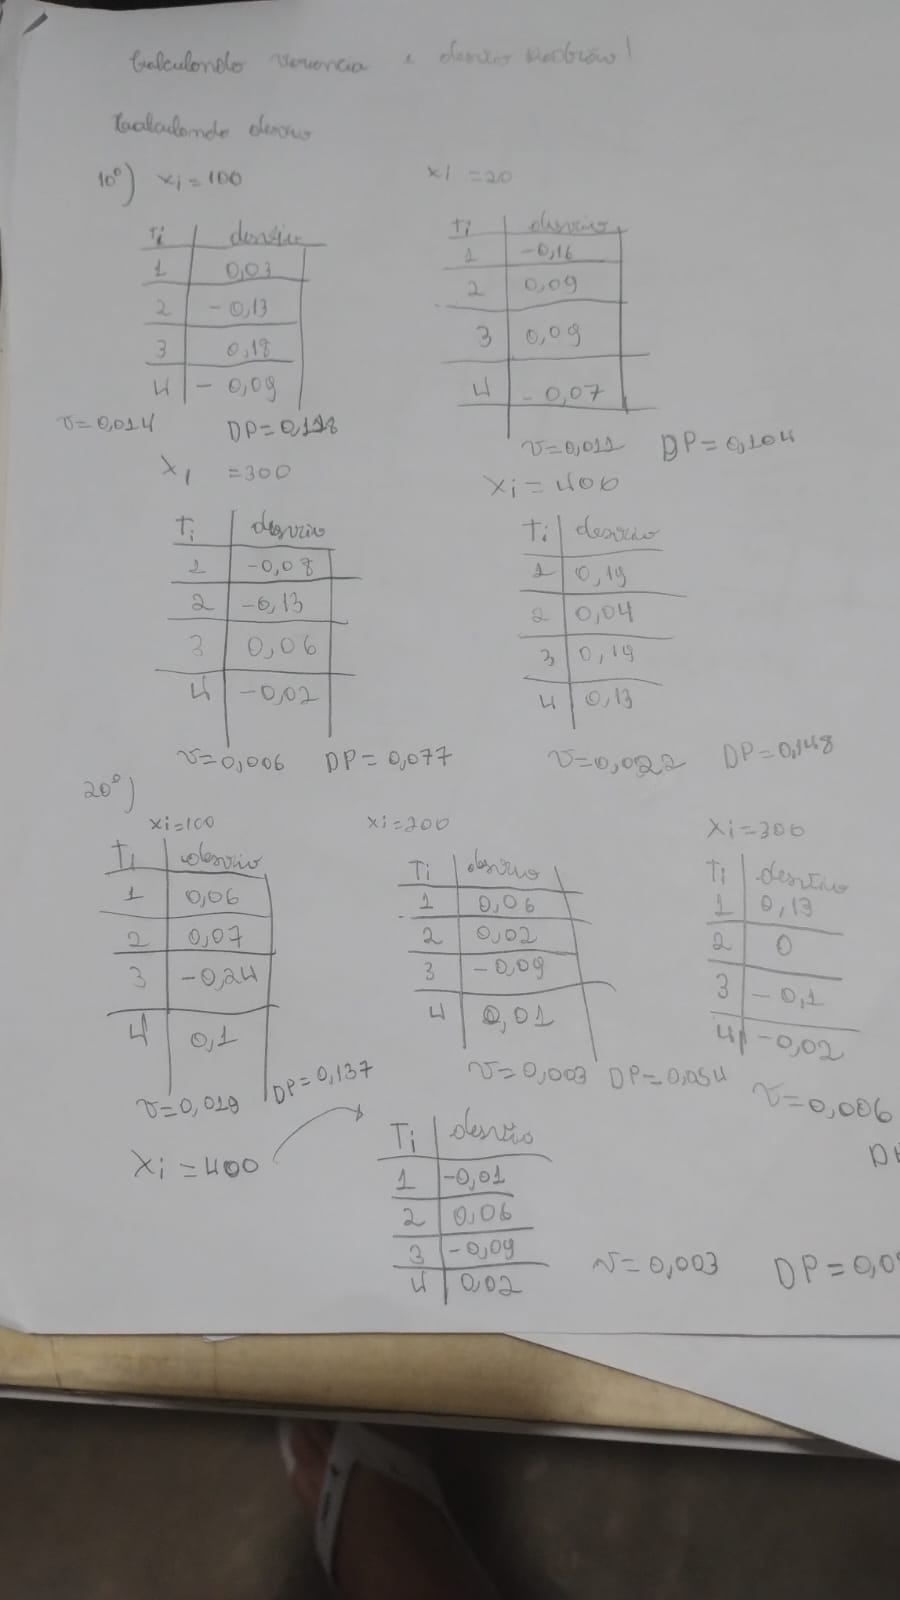 Calculando variancia e desvio padrão!
Calculando desvio
10°) xi = 100
Ti desvio
1 0,03
2 -0,13
3 0,18
4 -0,09
v=0,014 DP=0,118
xi =20
Ti desvio
1 -0,16
2 0,09
3 0,09
4 -0,07
v=0,011 DP=0,104
xi =300
Ti desvio
1 -0,08
2 -0,13
3 0,06
4 -0,02
v=0,006 DP=0,077
xi=400
Ti desvio
1 0,19
2 0,04
3 0,19
4 0,13
v=0,022 DP=0,148
20°)
xi=100
Ti desvio
1 0,06
2 0,07
3 -0,24
4 0,1
v=0,019 DP=0,137
xi=200
Ti desvio
1 0,06
2 0,02
3 -0,09
4 0,01
v=0,003 DP=0,054
xi=300
Ti desvio
1 0,13
2 0
3 -0,1
4 -0,02
v=0,006
xi=400
Ti desvio
1 -0,01
2 0,06
3 -0,09
4 0,02
v=0,003 DP=0,0